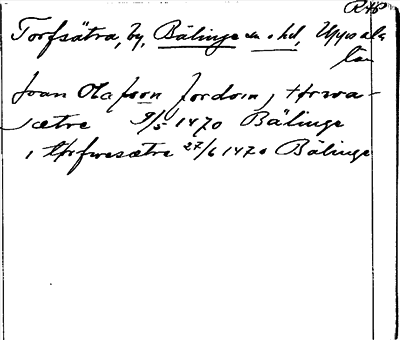 RAP
Torfsätra, by, Bälinge sn o hd, Uppsala
län
Joan Olafson Jordoin, thrwa-
sætre 9/5 1470 Bälinge
i thrfwesætre 27/6 1470 Bälinge